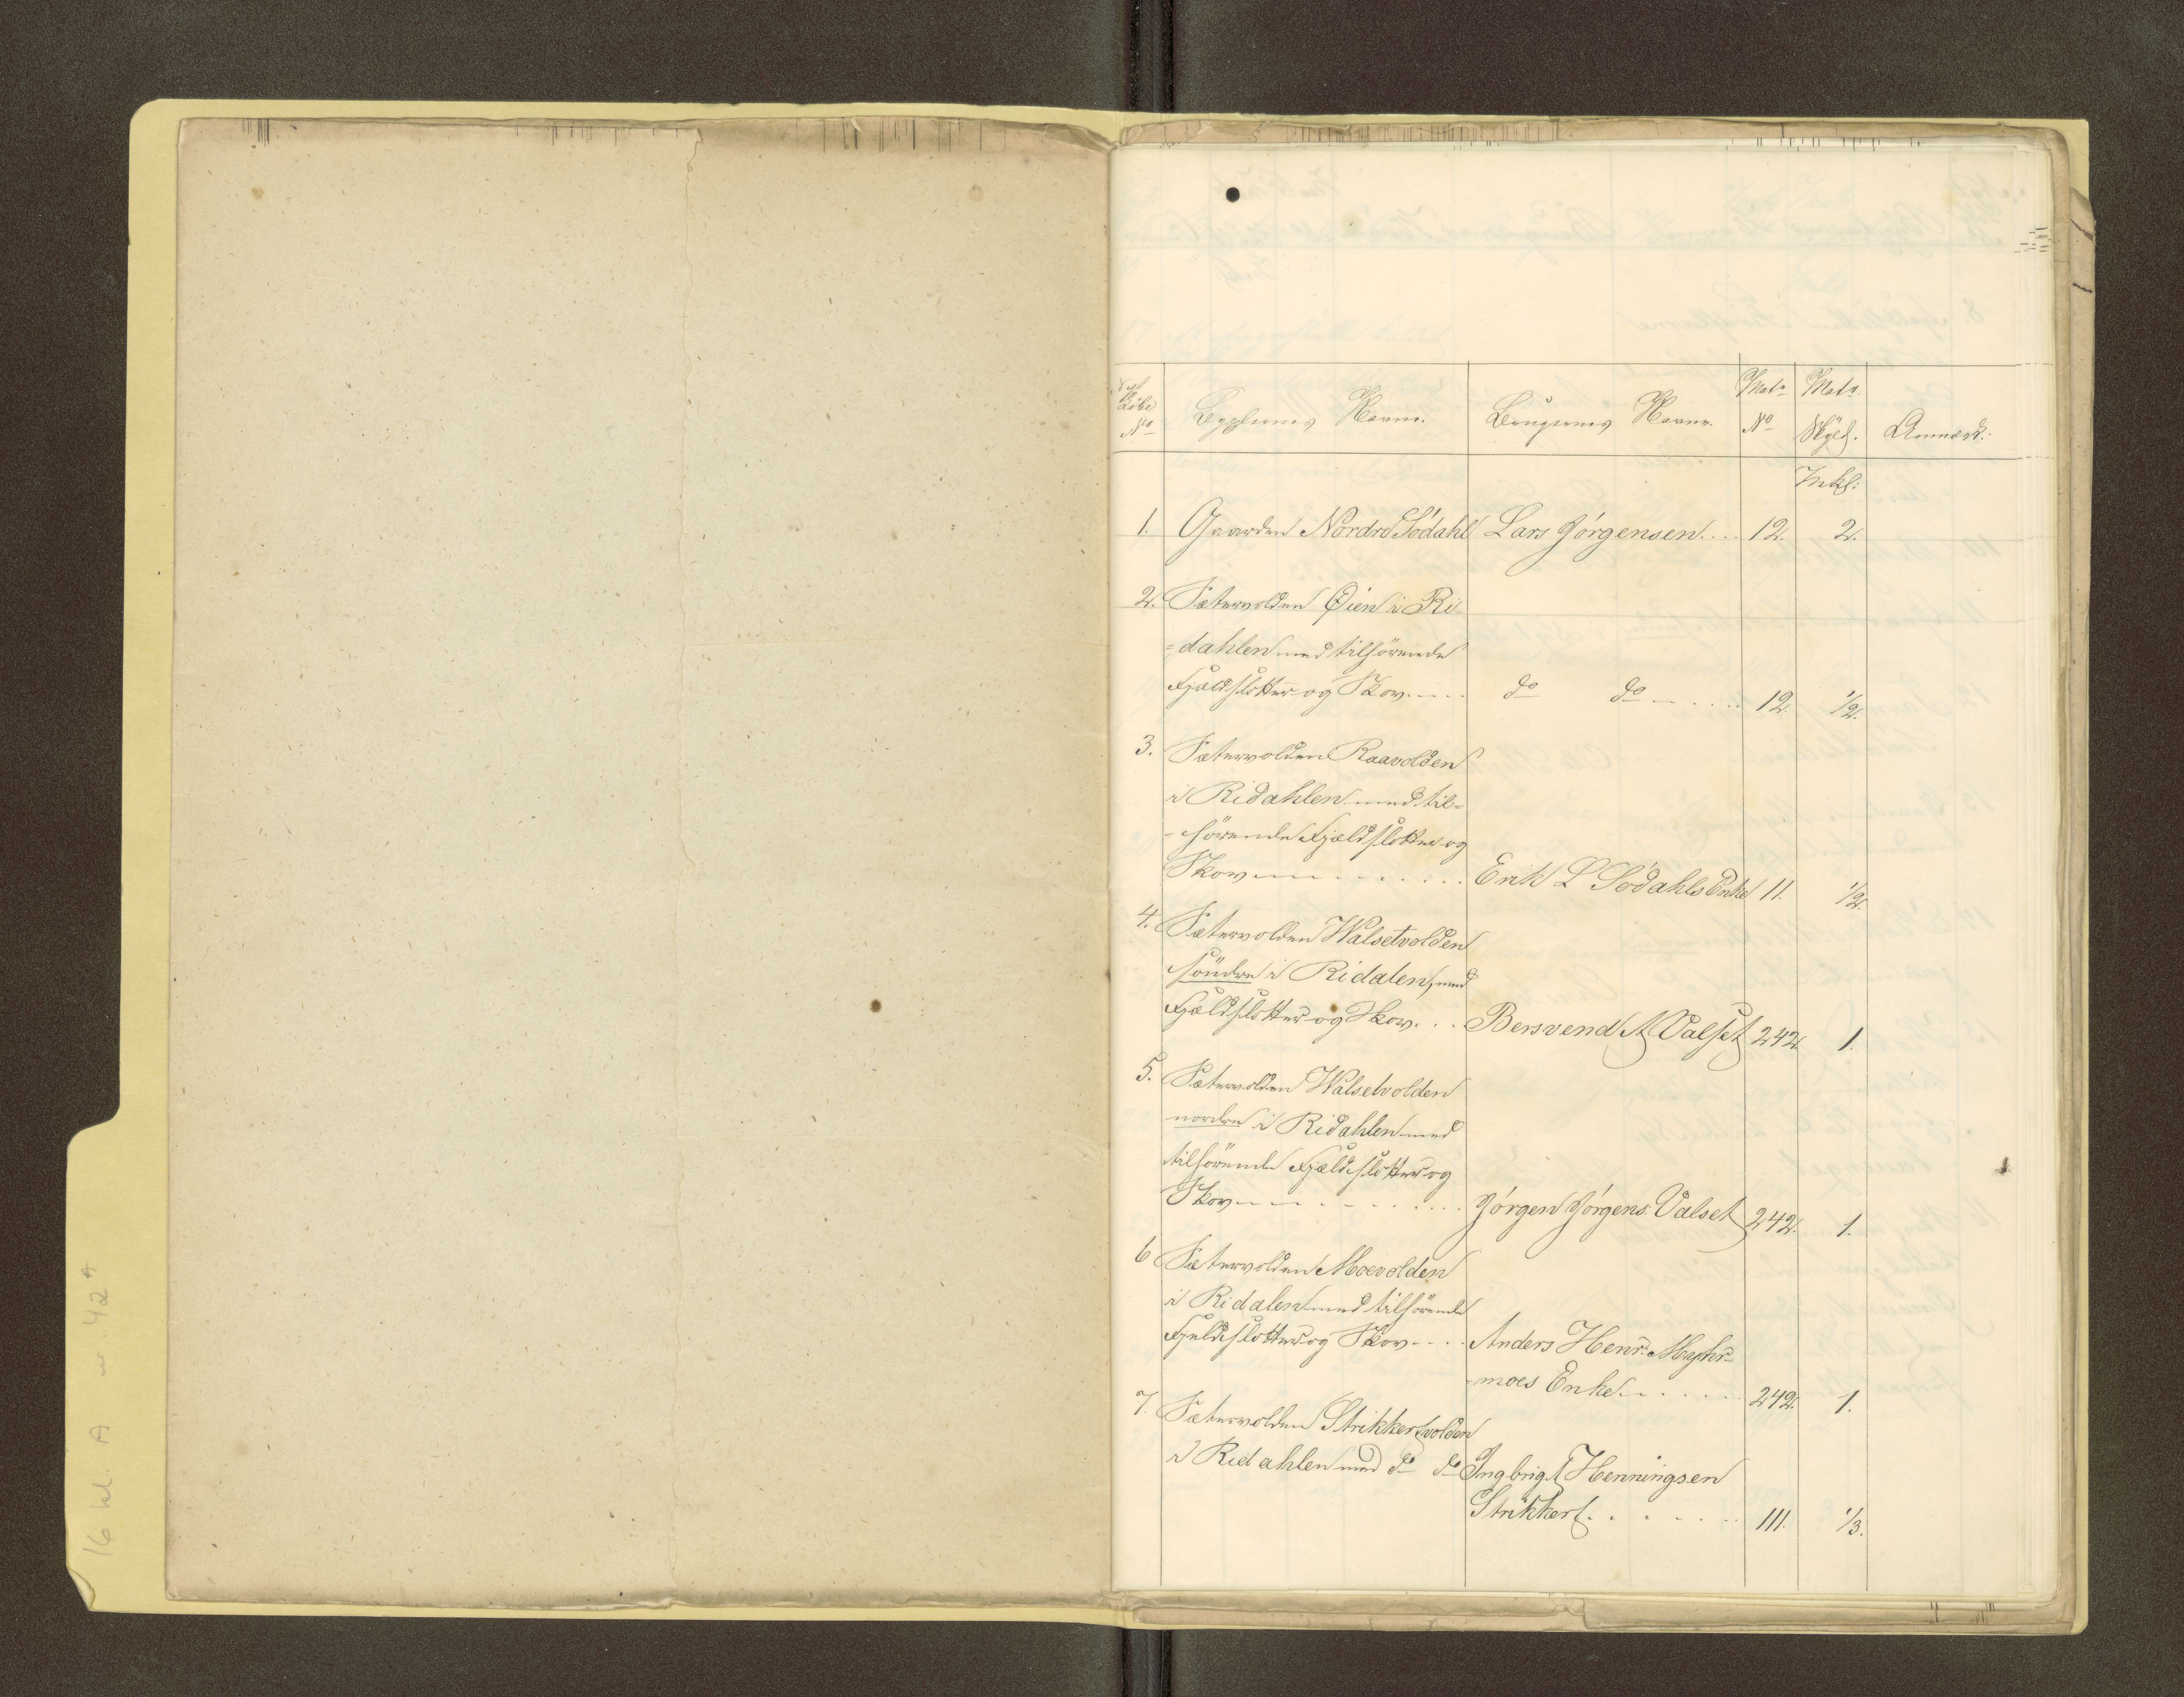 Løbe No
Bygslernes Navne.
Brugernes Navne.
Matr No
Matr Skyld.
Anmærk:
Inkl:
1. Gaarden Nordre Sødahl Lars Jørgensen.... 12. 2.
2. Sætervolden Øien i Ri-
=dahlen med tilhörende
Fjeldslotter og Skov..... do do..... 12. 1/2.
3. Sætervolden Raavolden
i Ridahlen med til-
-hörende Fjeldslotter og
Skov......... Erik L Sødahls Enke 11. 1/2.
4. Sætervolden Walsetvolden
söndre i Ridalen, med
Fjeldslotter og Skov... Bersvend A Valset 242. 1.
5. Sætervolden Walsetvolden
nordre i Ridahlen med
tilhörende Fjeldslotter og
Skov......... Jørgen Jørgens: Valset 242. 1.
6 Sætervolden Moevolden
i Ridalen med tilhörende
Fjeldslotter og Skov.... Anders Henr: Myhr-
-moes Enke...... 242. 1.
7. Sætervolden Strikkertvolden
i Ridahlen med do do Ingbrigt Henningsen
Strikkert....... 111. 1/3.
16 kl. A nr. 42 A